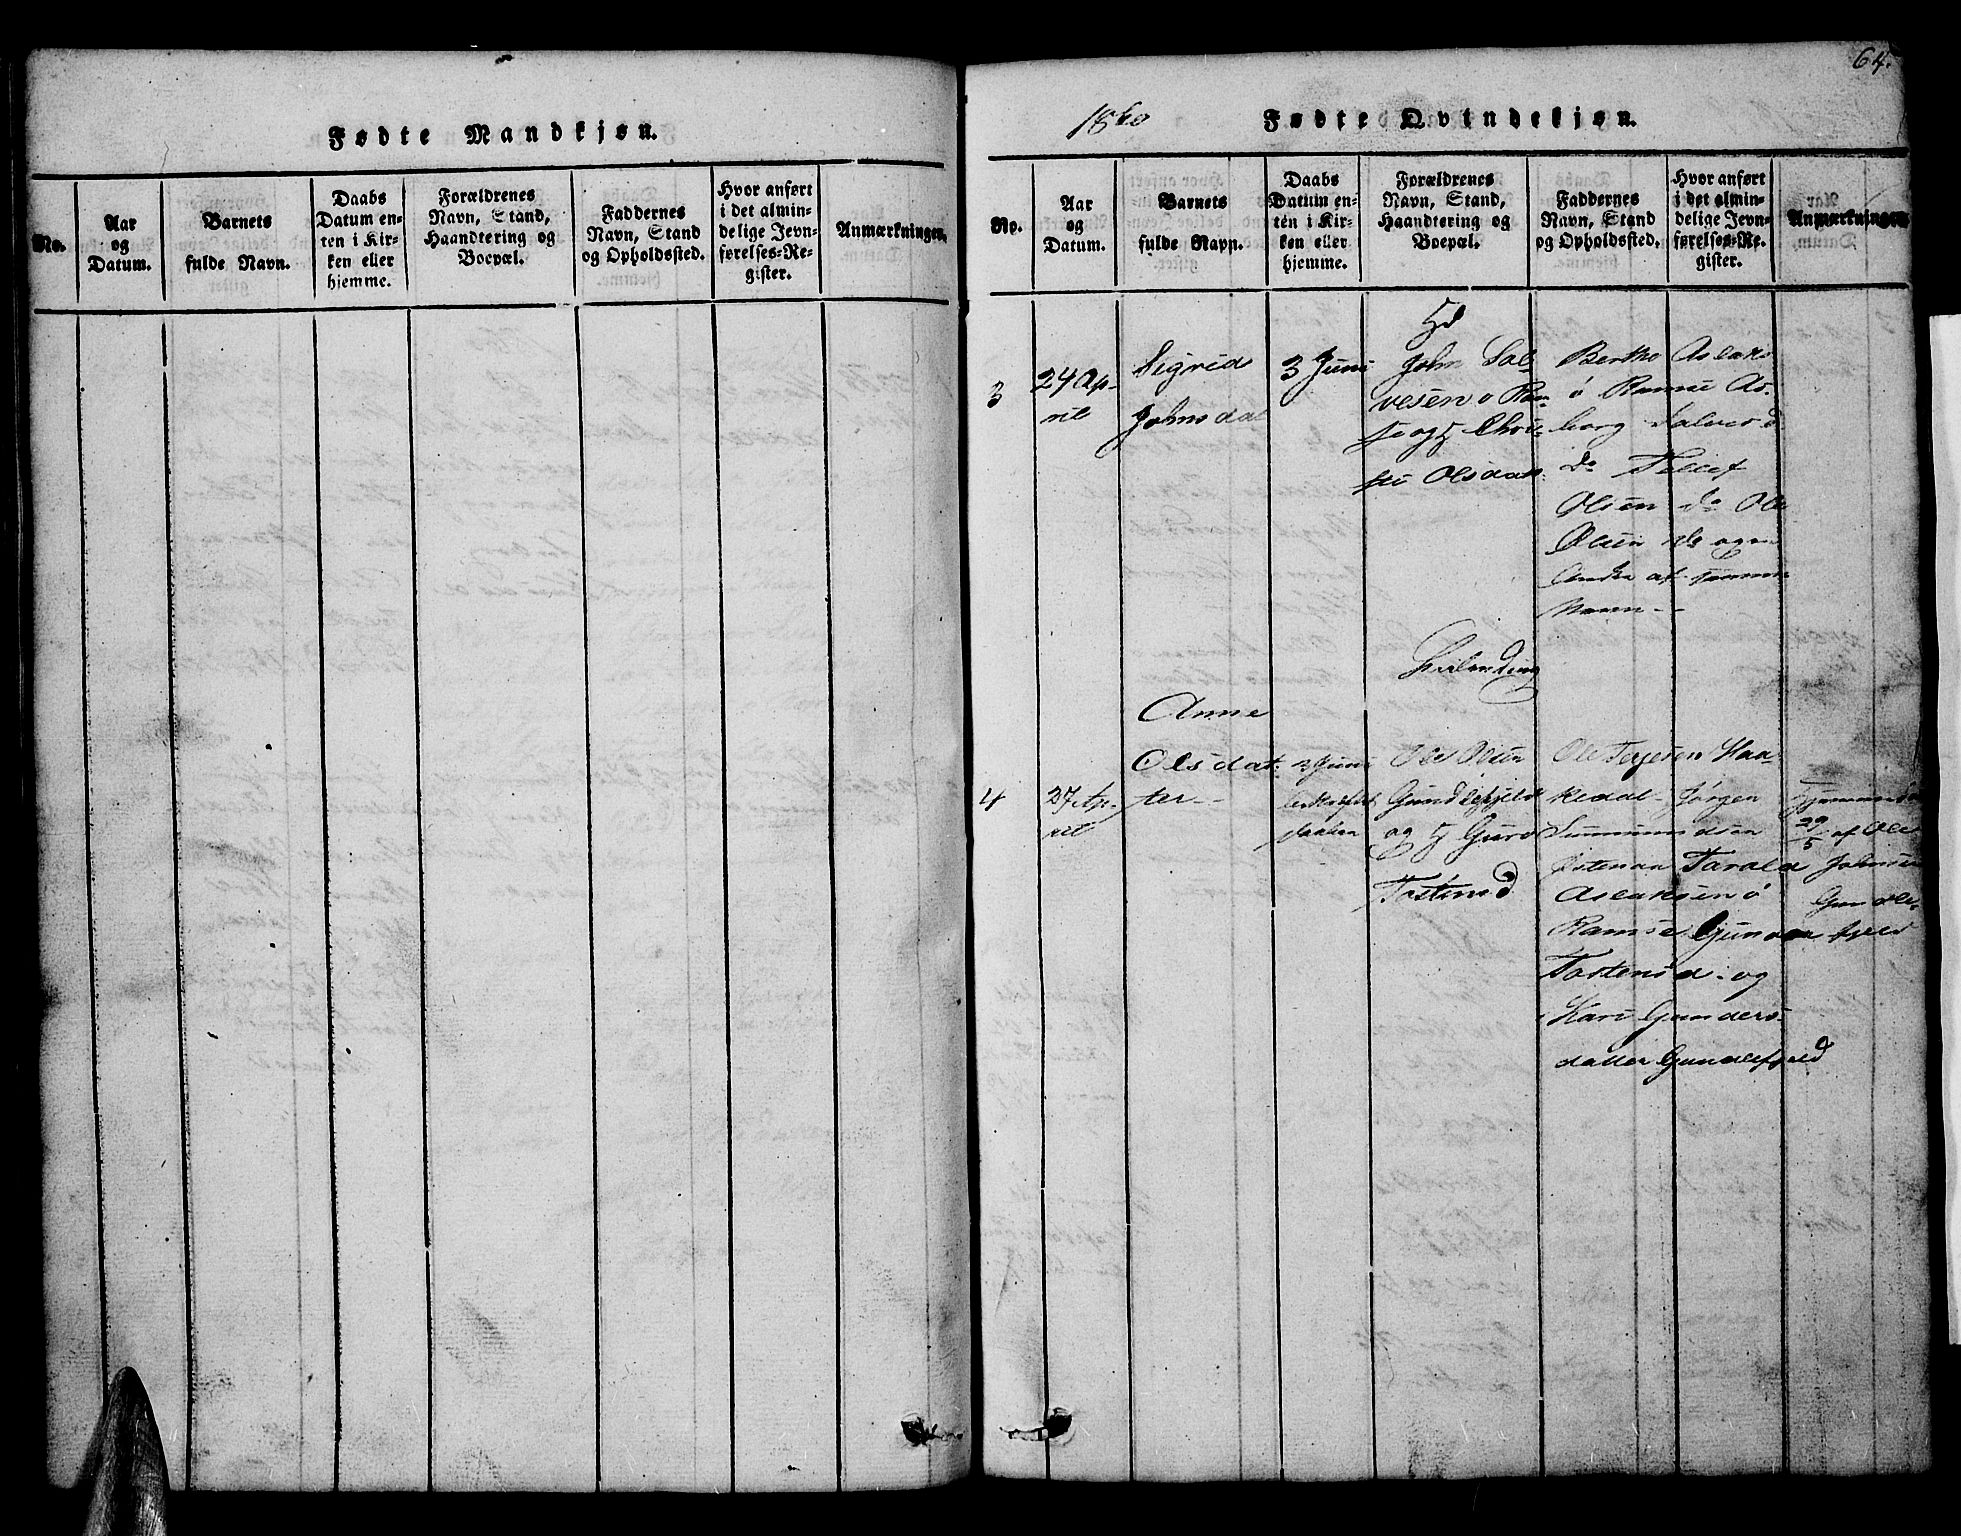 Fødte Mandkjøn.
No.
Aar
og
Datum.
Barnets
fulde Navn.
Daabs
Datum en-
ten i Kir-
ken eller
hjemme.
Forældrenes
Navn, Stand,
Haandtering og
Boepæl.
Faddernes
Navn, Stand
og Opholdssted.
Hvor anført
i det almin-
delige Jevn-
førelses-Re-
gister.
Anmærkninger.
64.
1860
Fødte Qvindekjøn.
No.
Aar
og
Datum.
Barnets
fulde Navn.
Daabs
Datum en-
ten i Kir-
ken eller
hjemme.
Forældrenes
Navn, Stand,
Haandtering og
Boepæl.
Faddernes
Navn, Stand
og Opholdssted.
Hvor anført
i det almin-
delige Jevn-
førelses-Re-
gister.
Anmærkninger.
3
24 Ap-
ril
Sigrid
Johnsdat
3 Juni
John Sal-
vesen o Ram-
se og Chri-
sti Olsdatt.
Bertho Aslaks
ö Ramse As-
borg Salvesd
do Tellef
Olsen do Ole
Olsen do og
Andre af samme
Navn - -
4
27 Ap-
ril
Anne
Olsdat-
ter -
3 Juni
daaben
Ole Olsen
Gundlefjeld
og Guro
Tostensd
Ole Terjesen Haa-
kedal - Jørgen
Summundsen
Østenaa Tarald
Aslaksen ö
Ramse Gunar
Tostensd - og
Kari Gunders-
datter Gundlefjeld
Hjemmedøbt
29/5 af Ole
Johnsen
Gundle-
fjeld